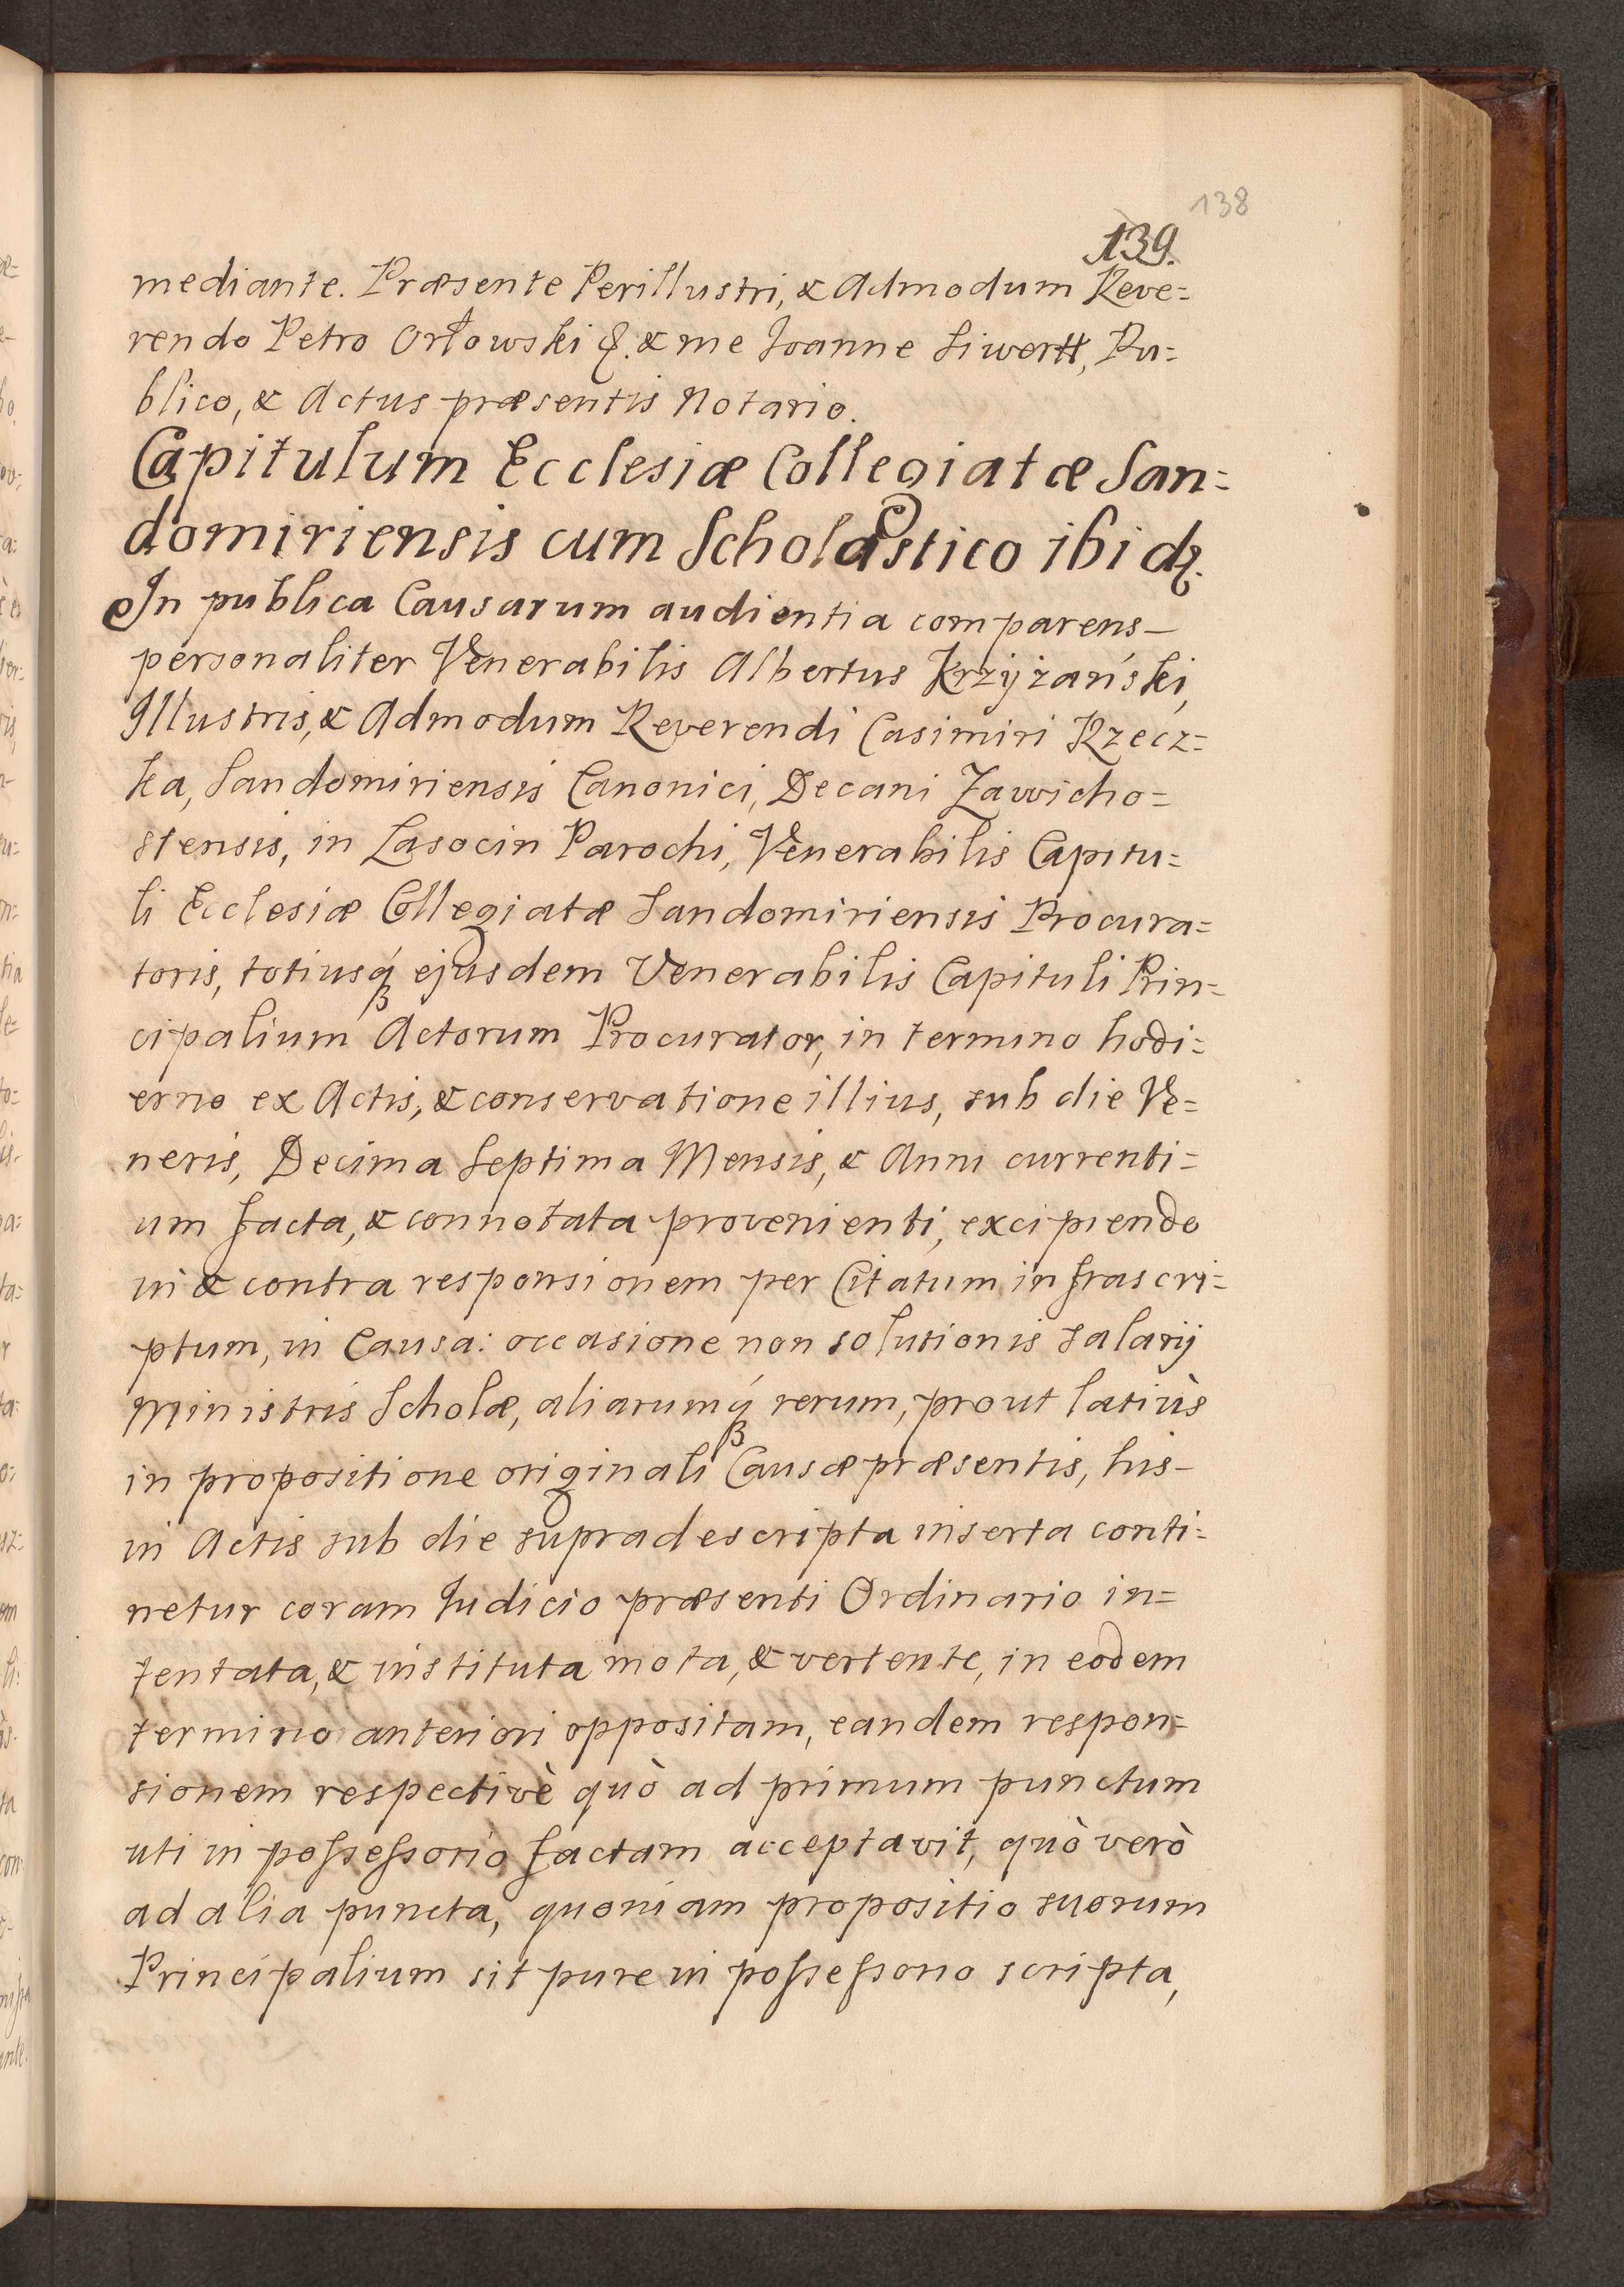 138
139.
mediante. Præsente Perillustri, & Admodum Reve=
rendo Petro Orłowski &. & me Joanne Siwertt, Pu=
blico, & Actus præsentis Notario.
Capitulum Ecclesiæ Collegiatæ San=
domiriensis cum Scholastico ibidꝫ.
In publica Causarum audientia comparens–
personaliter Venerabilis Albertus Krzyżański,
Illustris, & Admodum Reverendi Casimiri Rzecz=
ka, Sandomiriensis Canonici, Decani Zawicho=
stensis, in Lasocin Parochi, Venerabilis Capitu=
li Ecclesiæ Collegiatæ Sandomiriensis Procura=
toris, totiusq́ꝫ ejusdem Venerabilis Capituli Prin=
cipalium Actorum Procurator, in termino hodi=
erno ex Actis, & conservatione illius, sub die Ve=
neris, Decima Septima Mensis, & Anni currenti=
um facta, & connotata provenienti, excipiendo
in & contra responsionem per Citatum infrascri=
ptum, in Causa: occasione non solutionis salarij
Ministris Scholæ, aliarumq́ꝫ rerum, prout latiùs
in propositione originali Causæ præsentis, his–
in Actis sub die supradescripta inserta conti=
netur coram Judicio præsenti Ordinario in=
tentata, & instituta mota, & vertente, in eodem
termino anteriori oppositam, eandem respon=
sionem respectivè quò ad primum punctum
uti in possessorio factam acceptavit, quò verò
ad alia puncta, quoniam propositio suorum
Principalium sit pure in possessorio scripta,